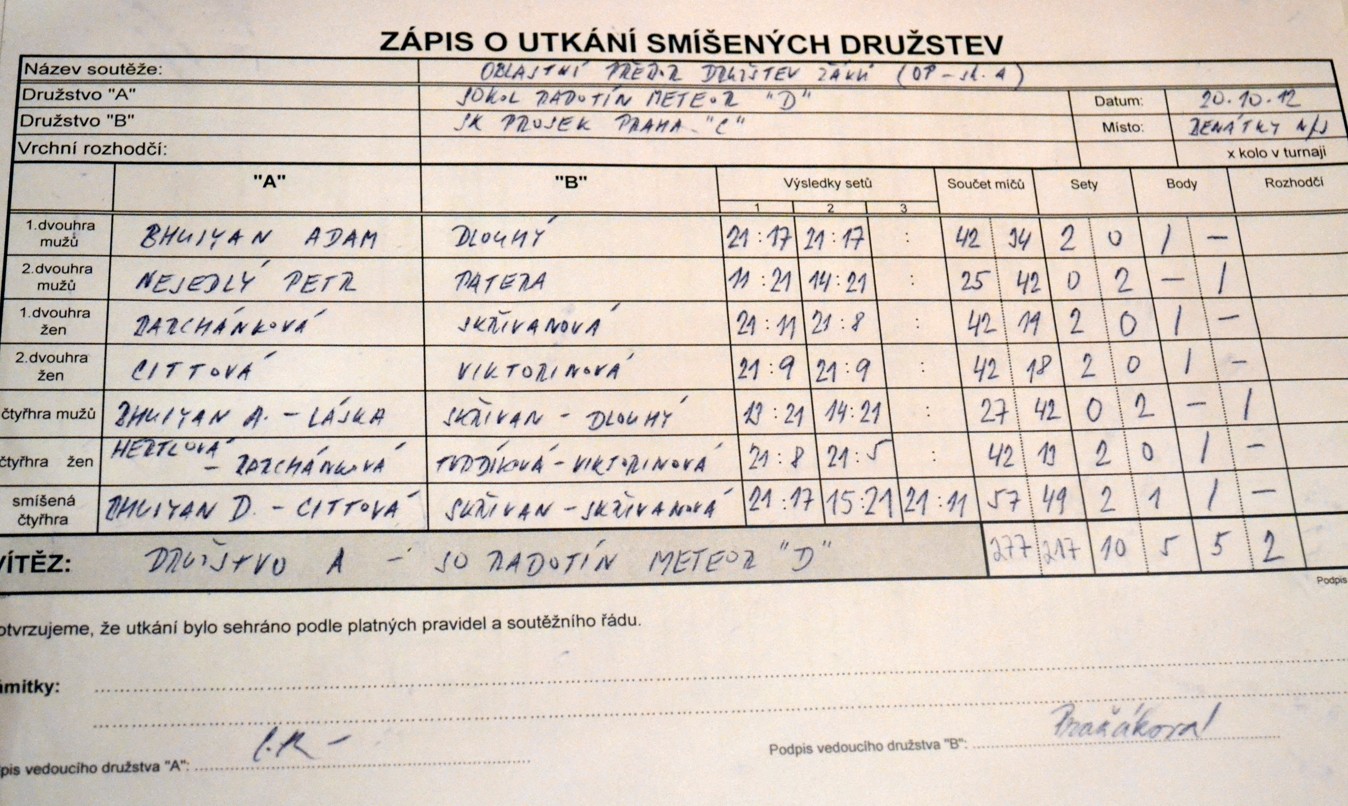 ZÁPIS O UTKÁNÍ SMÍŠENÝCH DRUŽSTEV
Název soutěže: OBLASTNÍ PŘEBOR DRUŽSTEV ŽÁKŮ (OP - sk. A)
Družstvo "A" SOKOL RADOTÍN METEOR "D" Datum: 20.10.12
Družstvo "B" SK PROSEK PRAHA "C" Místo: BENÁTKY N/J
Vrchní rozhodčí: x kolo v turnaji
"A" "B" Výsledky setů Součet míčů Sety Body Rozhodčí
1 2 3
1.dvouhra mužů BHUIYAN ADAM DLOUHÝ 21:17 21:17 : 42 34 2 0 1 –
2.dvouhra mužů NEJEDLÝ PETR PATERA 11:21 14:21 : 25 42 0 2 – 1
1.dvouhra žen BARCHÁNKOVÁ SKŘIVANOVÁ 21:11 21:8 : 42 19 2 0 1 –
2.dvouhra žen CITTOVÁ VIKTORINOVÁ 21:9 21:9 : 42 18 2 0 1 –
čtyřhra mužů BHUIYAN A. - LÁSKA SKŘIVAN - DLOUHÝ 13:21 14:21 : 27 42 0 2 – 1
čtyřhra žen HERTLOVÁ - BARCHÁNKOVÁ TVRDÍKOVÁ - VIKTORINOVÁ 21:8 21:5 : 42 13 2 0 1 –
smíšená čtyřhra BHUIYAN D. - CITTOVÁ SKŘIVAN - SKŘIVANOVÁ 21:17 15:21 21:11 57 49 2 1 1 –
VÍTĚZ: DRUŽSTVO A - SO RADOTÍN METEOR "D" 277 217 10 5 5 2
Podpis
otvrzujeme, že utkání bylo sehráno podle platných pravidel a soutěžního řádu.
ámitky:
pis vedoucího družstva "A":
Podpis vedoucího družstva "B":